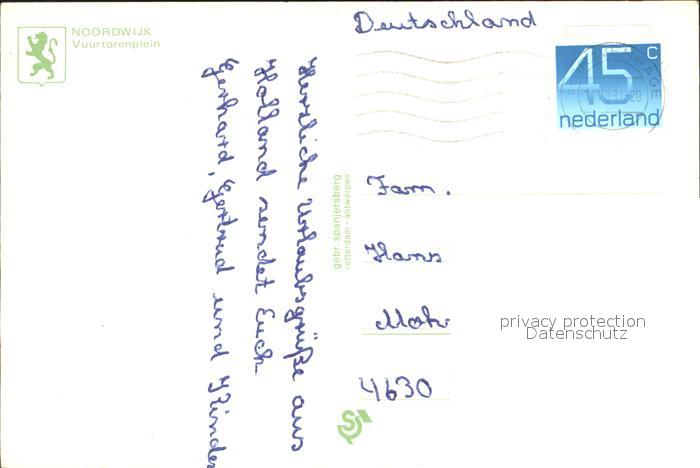 NOORDWIJK
Vuurtorenplein
Herzliche Urlaubsgrüße aus
Holland sendet Euch
Gerhard, Gertrud und Kinder
gebr. spanjersberg
rotterdam - antwerpen
Deutschland
45 c
nederland
Fam.
Hans
4630
privacy protection
Datenschutz